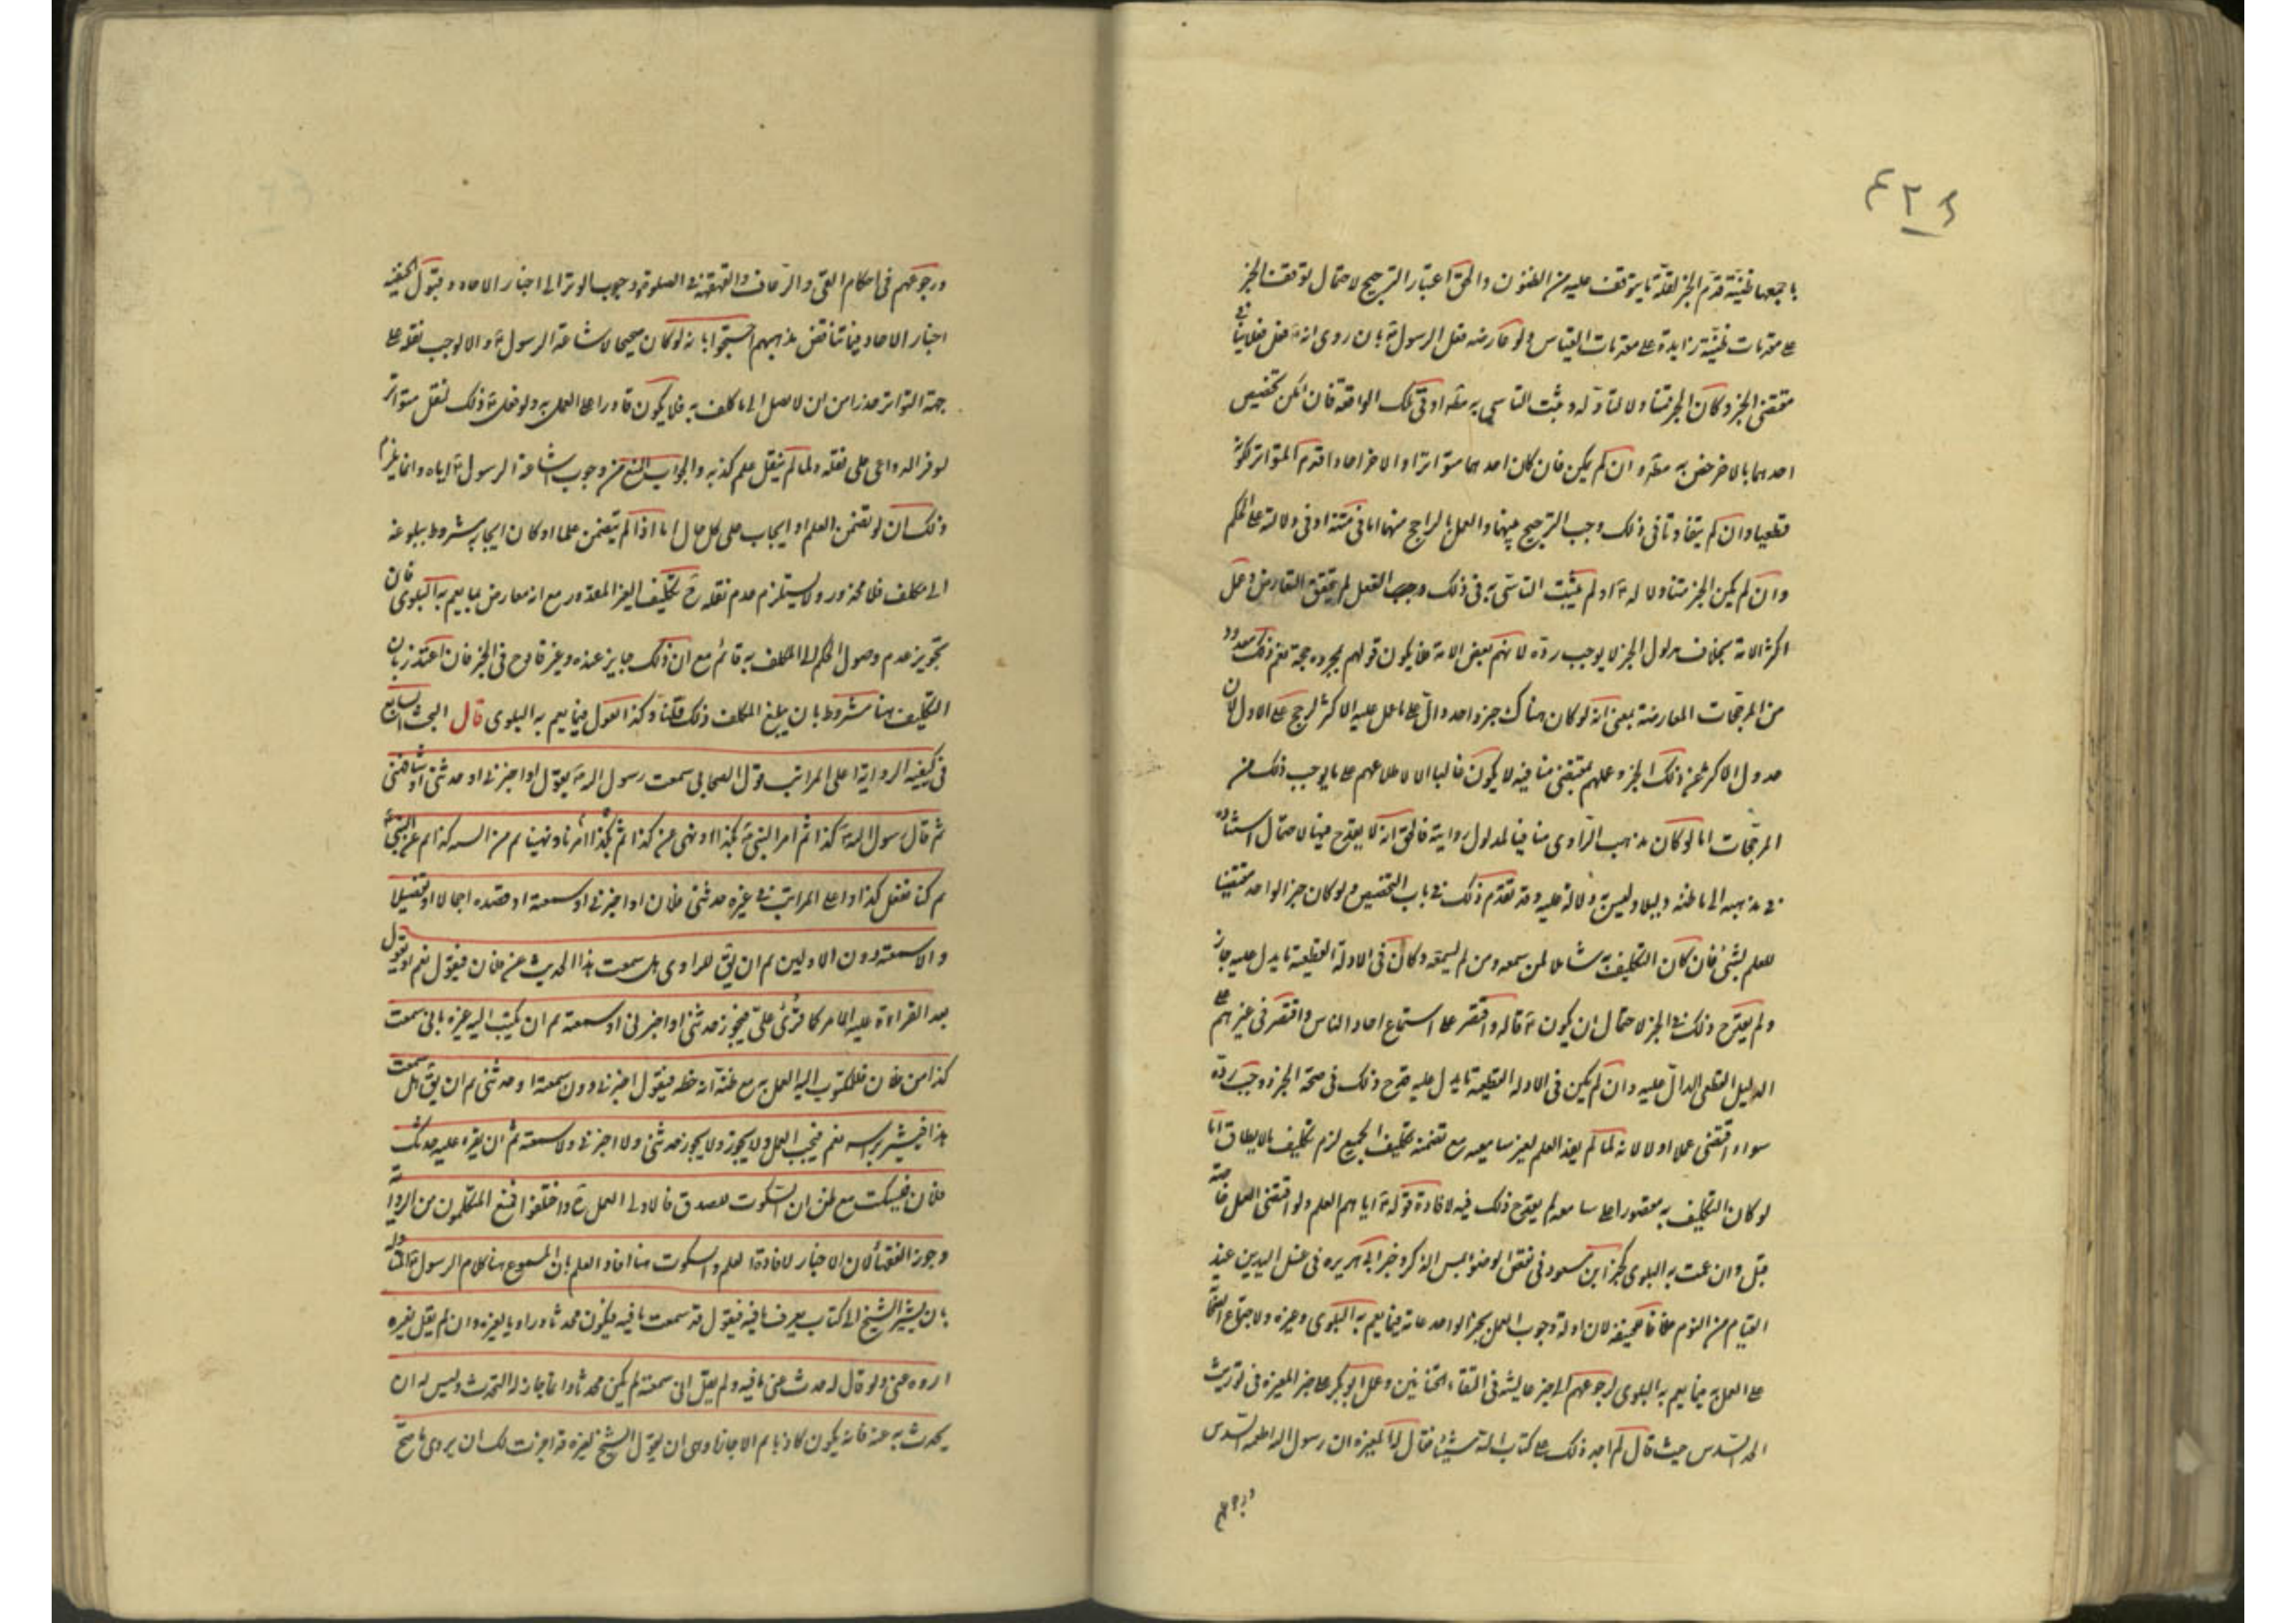 ٤٢٤
باجمعها ظنية قدم الخبر لقلة ما يتوقف عليه من الظنون والحق اعتبار الترجيح لاحتمال توقف الخبر
على مقدمات ظنية زايدة على مقدمات القياس ولو عارضه فعل الرسول بان روى انه فعل فعلا ينافى
مقتضى الخبر وكان الخبر متناولا له وثبت التاسى به مطلقا او فى تلك الواقعة فان امكن تخصيص
احدهما بالاخر خص به مطلقا وان لم يكن فان كان احدهما متواترا والاخر احادا قدم المتواتر لكونه
قطعيا وان لم يتفاوتا فى ذلك وجب الترجيح بينهما والعمل بالراجح منهما اما فى متنه او فى دلالته على الحكم
وان لم يكن الخبر متناولا له او لم يثبت التاسى به فى ذلك وجب الفعل لم يتحقق التعارض وعمل
اكثر الامة بخلاف مدلول الخبر لا يوجب رده لانهم بعض الامة فلا يكون قولهم بمجرده حجة نعم ذلك معدود
من المرجحات المعارضة بمعنى انه لو كان هناك خبر واحد دال على ما عمل عليه الاكثر لرجح على الاول لان
عدول الاكثر عن ذلك الخبر وعملهم بمقتضى منافيه لا يكون غالبا الا لاطلاعهم على ما يوجب ذلك من
المرجحات اما لو كان مذهب الراوى منافيا لمدلول روايته فالحق انه لا يقدح فيها لاحتمال استناده
فى مذهبه الى ما ظنه دليلا وليس به دلالة عليه وقد تقدم ذلك فى باب التخصيص ولو كان خبر الواحد مقتضيا
للعلم بشئ فان كان التكليف به شاملا لمن سمعه ومن لم يسمعه وكان فى الادلة القطعية ما يدل عليه جاز
ولم يقدح ذلك فى الخبر لاحتمال ان يكون قاله واقتصر على استماع احاد الناس واقتصر فى غيرهم على
الدليل القطعى الدال عليه وان لم يكن فى الادلة القطعية ما يدل عليه قدح ذلك فى صحة الخبر ووجب رده
سواء اقتضى عملا او لا لانه لما لم يفد العلم لغير سامعيه مع تضمنه تكليف الجميع لزم تكليف ما لا يطاق اما
لو كان التكليف به مقصورا على سامعه لم يقدح ذلك فيه لافادة قوله اياهم العلم ولو اقتضى العمل خاصة
قبل وان عمت به البلوى كخبر ابن مسعود فى نقض الوضوء بمس الذكر وخبر ابى هريرة فى غسل اليدين عند
القيام من النوم خلافا للحنيفة لان ادلة وجوب العمل بخبر الواحد عامة فيما يعم به البلوى وغيره ولاجماع الصحابة
على العمل به فيما يعم به البلوى لرجوعهم الى خبر عايشة فى التقاء الختانين وعمل ابو بكر على خبر المغيرة فى توريث
الجد السدس حيث قال لم اجد ذلك على كتاب الله شيئا فقال له المغيرة ان رسول الله اطعمه السدس
ورجوعهم
ورجوعهم فى احكام القئ والرعاف والقهقهة فى الصلوة ووجوب الوتر الى اخبار الاحاد وقبول الحنفية
اخبار الاحاد فيها تناقض مذهبهم احتجوا بانه لو كان صحيحا لاشاعه الرسول والا لوجب نقله على
جهة التواتر حذرا من ان لا يصل الى ما كلف به فلا يكون قادرا على العمل به ولو فعل ذلك لنقل متواترا
لتوفر الدواعى على نقله ولما لم ينقل علم كذبه والجواب المنع من وجوب اشاعة الرسول اياه وانما يلزم
ذلك ان لو تضمن العلم او ايجاب على كل حال اما اذا لم يتضمن علما او كان ايجابه بشرط ببلوغه
الى مكلف فلا محذور ولا يستلزم عدم نقله تكليف الغير المقدور مع انه معارض بما يعم به البلوى فان
تجويز عدم وصول الحكم الى المكلف به قائم مع ان ذلك جايز عنده وغير قادح فى الخبر فان اعتذر بان
التكليف هنا مشروط بان يبلغ المكلف ذلك قلنا وكذا القول فيما يعم به البلوى قال البحث السابع
فى كيفية الرواية اعلى المراتب قول الصحابى سمعت رسول الله يقول او اخبرنى او حدثنى او شافهنى
ثم قال رسول الله كذا ثم امر النبى بكذا او نهى عن كذا ثم امرنا بكذا ونهينا ثم من السنة كذا ثم عن النبى
ثم كنا نفعل كذا واعلى المراتب فى غيره حدثنى فلان او اخبرنى او سمعته او قصده اجمالا او تفصيلا
والا سمعته دون الاولين ثم ان يق للراوى هل سمعت هذا الحديث عن فلان فيقول نعم او يقول
بعد القراءة عليه الامر كما قرئ على فيجوز حدثنى او اخبرنى او سمعته ثم ان يكتب الى غيره بانى سمعت
كذا من فلان فللمكتوب اليه العمل به مع ظنه انه خطه فيقول اخبرنى دون سمعته او حدثنى ثم ان يق هل سمعت
هذا فيشير براسه نعم فيجب العمل ولا يجوز حدثنى ولا اخبرنى ولا سمعته ثم ان يقرء عليه حدثك
فلان فيسكت مع ظن ان السكوت للصدق فالاولى العمل واختلفوا فمنع المتكلمون من الرواية
وجوز الفقهاء لان الاخبار لافادة العلم والسكوت هنا افاد العلم بان المسموع هنا كلام الرسول المناولة
بان يشير الشيخ الى كتاب يعرف ما فيه فيقول قد سمعت ما فيه فيكون محدثا وراويا لغيره وان لم يقل لغيره
اروه عنى ولو قال له حدث عنى ما فيه ولم يقل انى سمعته لم يكن محدثا وانما اجاز له التحدث وليس له ان
يحدث به عنه فانه يكون كاذبا ثم الاجازة وهى ان يقول الشيخ لغيره قد اجزت لك ان يروى ما صح